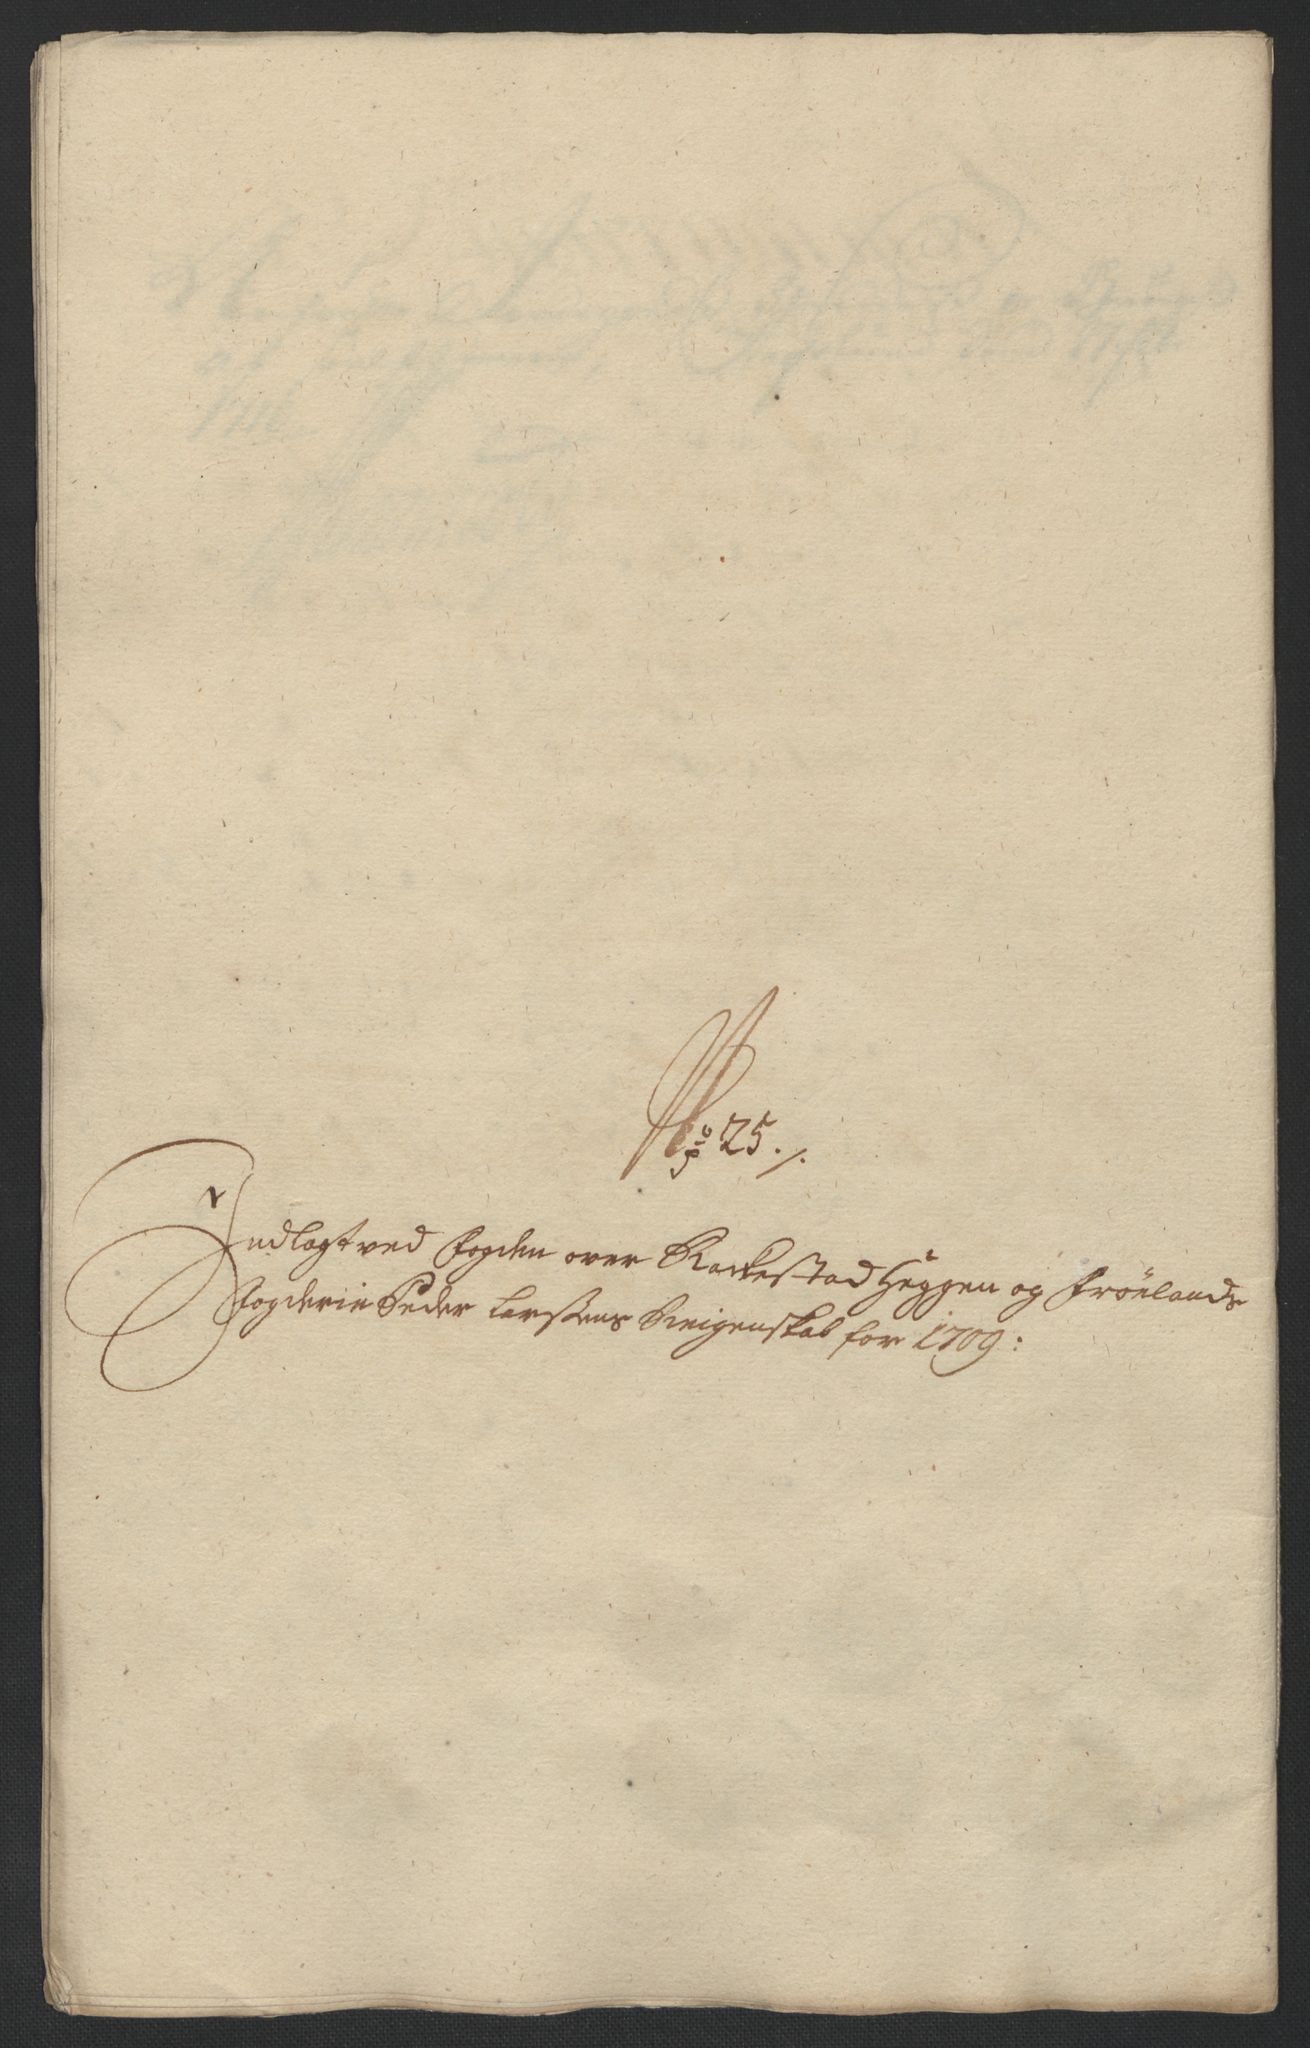 No 25 ./.
Indlagt ved fogden over Rackestad Heggen og Frönlands
fogderie Peder Larsens Reigenskab for 1709: